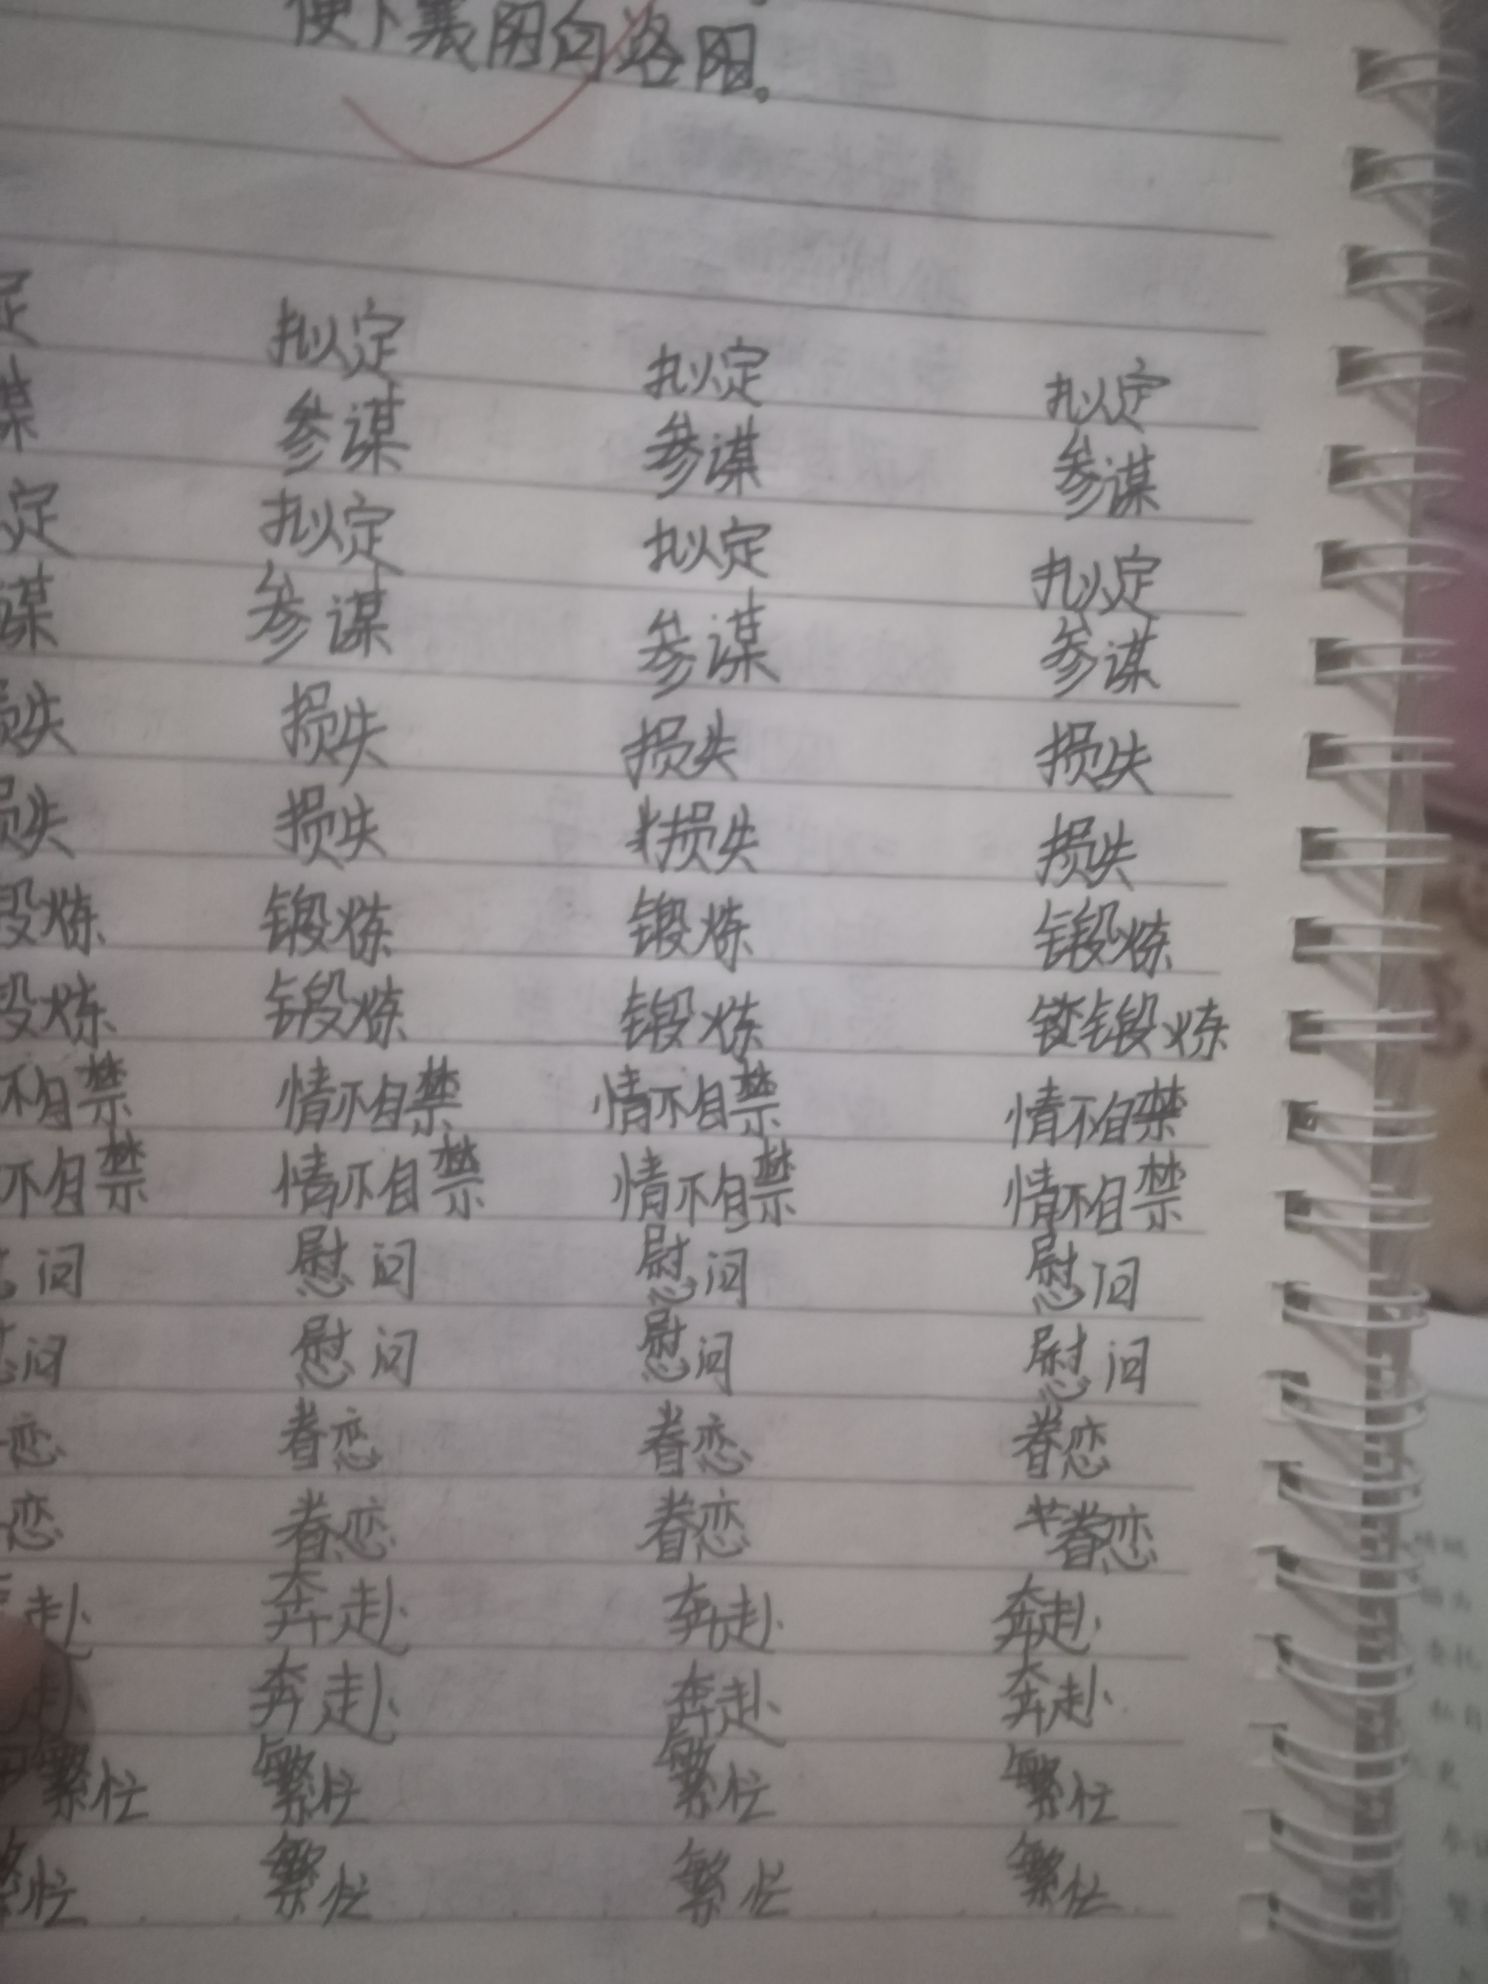 便下襄阳向洛阳。
定 拟定 拟定 拟定
谋 参谋 参谋 参谋
定 拟定 拟定 拟定
谋 参谋 参谋 参谋
损失 损失 损失 损失
损失 损失 损失 损失
锻炼 锻炼 锻炼 锻炼
锻炼 锻炼 锻炼 锻炼
不自禁 情不自禁 情不自禁 情不自禁
不自禁 情不自禁 情不自禁 情不自禁
问 慰问 慰问 慰问
问 慰问 慰问 慰问
恋 眷恋 眷恋 眷恋
恋 眷恋 眷恋 眷恋
赴 奔赴 奔赴 奔赴
赴 奔赴 奔赴 奔赴
繁忙 繁忙 繁忙 繁忙
繁忙 繁忙 繁忙 繁忙